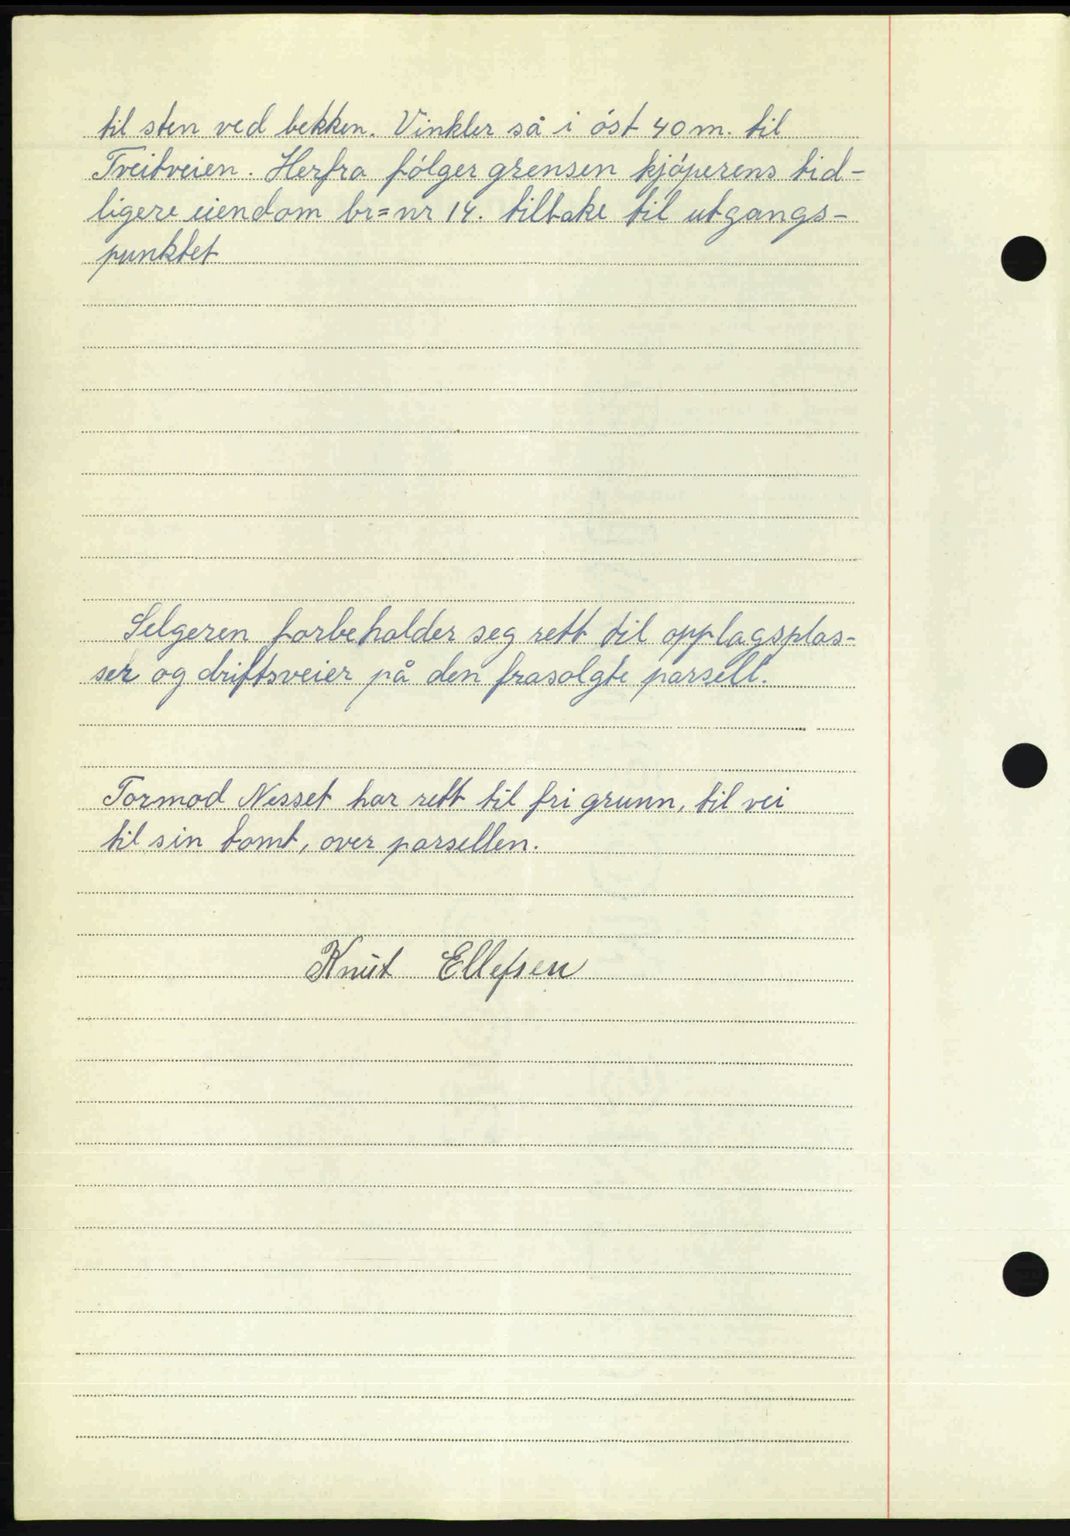 til sten ved bekken. Vinkler så i öst 40 m. til
Tveitveien. Herfra fólger grensen kjóperens tid-
ligere eiendom br=nr 14. tilbake til utgangs-
punktet
Selgeren forbeholder seg rett til opplagsplas-
ser og driftsveier på den frasolgte parsell.
Tormod Nesset har rett til fri grunn, til vei
til sin tomt, over parsellen.
Knut Ellefsen